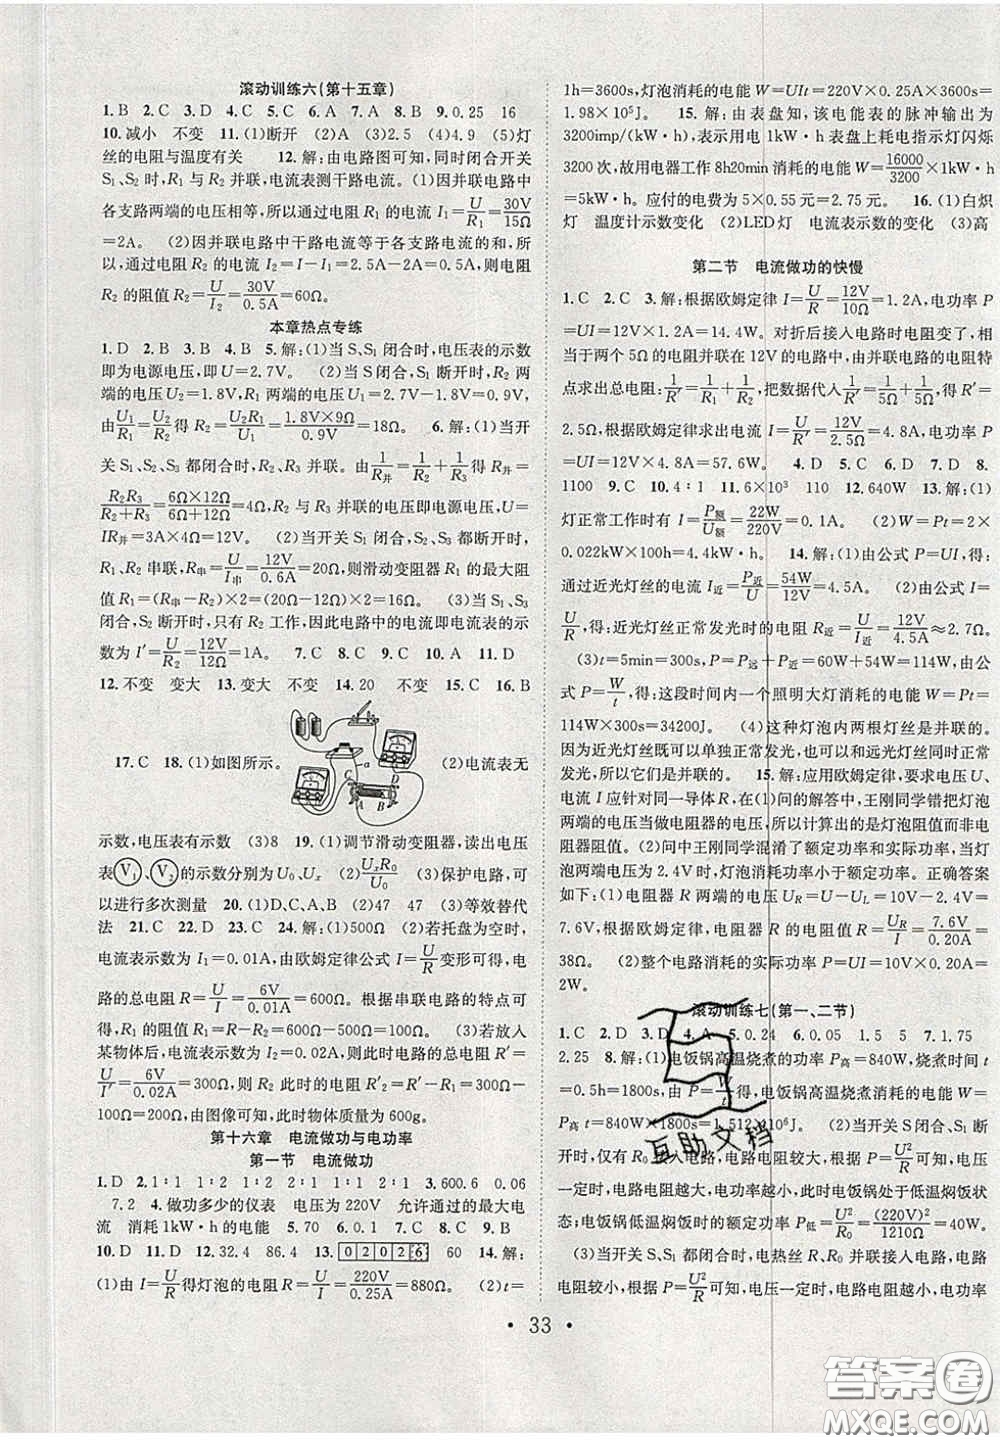 滚动训练六(第十五章)
1.B 2.C 3.D 4.C 5.C 6.A 7.A 8.D 9.0.25 16
10.减小 不变 11.(1)断开 (2)A (3)2.5 (4)4.9 (5)灯
丝的电阻与温度有关 12.解:由电路图可知,同时闭合开关
S₁、S₂时,R₁与R₂并联,电流表测干路电流。(1)因并联电路中
各支路两端的电压相等,所以通过电阻R₁的电流I₁=U/R₁=30V/15Ω
=2A。 (2)因并联电路中干路电流等于各支路电流的和,所
以,通过电阻R₂的电流I₂=I-I₁=2.5A-2A=0.5A,则电阻
R₂的阻值R₂=U/I₂=30V/0.5A=60Ω。
本章热点专练
1.D 2.B 3.A 4.B 5.解:(1)当S、S₁闭合时,电压表的示数
即为电源电压,即U=2.7V。 (2)当S闭合,S₁断开时,R₂两
端的电压U₂=1.8V,R₁两端的电压U₁=2.7V-1.8V=0.9V,
由U₁/R₁=U₂/R₂得R₂=U₂R₁/U₁=1.8V×9Ω/0.9V=18Ω。 6.解:(1)当开
关S、S₁、S₂、S₃都闭合时,R₂、R₃并联。由1/R并=1/R₂+1/R₃得R并=
R₂R₃/(R₂+R₃)=6Ω×12Ω/(6Ω+12Ω)=4Ω,R₂与R₃并联的电压即电源电压,U=
IR并=3A×4Ω=12V。 (2)当开关S闭合,S₁、S₂、S₃都断开时,
R₁、R₂串联,R串=U/I串=12V/0.6A=20Ω,则滑动变阻器R₁的最大阻
值R₁=(R串-R₂)×2=(20Ω-12Ω)×2=16Ω。 (3)当S、S₁、S₃
闭合,S₂断开时,只有R₂工作,因此电路中的电流即电流表的示
数为I′=U/R₂=12V/12Ω=1A。 7.C 8.C 9.C 10.A 11.D
12.不变 变大 13.变大 不变 14.20 不变 15.C 16.B
17.C 18.(1)如图所示。 (2)电流表无
a
C D
A B
示数,电压表有示数 (3)8 19.(1)调节滑动变阻器,读出电压
表V₁、V₂的示数分别为U₀、Uₓ (2)UₓR₀/U₀ (3)保护电路,可
以进行多次测量 20.(1)D、C、A (2)47 47 (3)等效替代
法 21.C 22.D 23.A 24.解:(1)串联 (2)若托盘为空时,
电流表示数为I₁=0.01A,由欧姆定律公式I=U/R变形可得:串联
电路的总电阻R=U/I=6V/0.01A=600Ω。根据串联电路的特点可
得,R₁的阻值R₁=R-R₂=600Ω-300Ω=300Ω。 (3)若放入
某物体后,电流表示数为I₂=0.02A,此时电路的总电阻R′=
U/I′=6V/0.02A=300Ω,则R₂此时的电阻R′₂=R′-R₁=300Ω-
100Ω=200Ω,由图像可知,此时物体质量为600g。
第十六章 电流做功与电功率
第一节 电流做功
1.D 2.1∶1 1∶2 1∶2 1∶1 1∶1 1∶1 3.600.6 0.06
7.2 4.做功多少的仪表 电压为220V 允许通过的最大电
流 消耗1kW·h的电能 5.70 6.0.1 7.C 8.C 9.B
10.D 11.D 12.32.4 86.4 13.02026 60 14.解:
(1)由I=U/R得灯泡的电阻R=U/I=220V/0.25A=880Ω。 (2)t=
1h=3600s,灯泡消耗的电能W=UIt=220V×0.25A×3600s=
1.98×10⁵J。 15.解:由表盘知,该电能表的脉冲输出为
3200imp/(kW·h),表示用电1kW·h表盘上耗电指示灯闪烁
3200次,故用电器工作8h20min消耗的电能W=16000/3200×1kW·h
=5kW·h。应付的电费为5×0.55元=2.75元。 16.(1)白炽
灯 温度计示数变化 (2)LED灯 电流表示数的变化 (3)高
第二节 电流做功的快慢
1.C 2.C 3.解:根据欧姆定律I=U/R=12V/10Ω=1.2A,电功率P
=UI=12V×1.2A=14.4W。对折后接入电路时电阻变了,相
当于两个5Ω的电阻并联在12V的电路中,由并联电路的电阻特
点求出总电阻:1/R′=1/R₁+1/R₂,把数据代入1/R′=1/5Ω+1/5Ω,得R′=
2.5Ω,根据欧姆定律求出电流I=U/R′=12V/2.5Ω=4.8A,电功率
P=UI=12V×4.8A=57.6W。 4.D 5.C 6.D 7.D 8.
1100 9.C 10.4∶1 11.6×10³ 110 12.640W 13.解:(1)
灯正常工作时有I=P额/U额=22W/220V=0.1A。 (2)W=Pt=2×
0.022kW×100h=4.4kW·h。 14.解:(1)由公式P=UI,得:
通过近光灯丝的电流I近=P近/U=54W/12V=4.5A。 (2)由公式I=
U/R,得:近光灯丝正常发光时的电阻R近=U/I近=12V/4.5A≈2.7Ω。
(3)t=5min=300s,P=P远+P近=60W+54W=114W,由公
式P=W/t,得:这段时间内一个照明大灯消耗的电能W=Pt=
114W×300s=34200J。 (4)这种灯泡内两根灯丝是并联的。
因为近光灯丝既可以单独正常发光,也可以和远光灯丝同时正常
发光,所以它们是并联的。 15.解:应用欧姆定律,要求电压U、
电流I应针对同一导体R。(1)问的解答中,王刚同学错把灯泡
两端的电压当做电阻器的电压,所以计算出的是灯泡阻值而非电
阻器阻值。(2)问中王刚同学混淆了额定功率和实际功率,当灯
泡两端电压为2.4V时,灯泡消耗功率小于额定功率。正确答案
如下:(1)电阻器R两端的电压UR=U-UL=10V-2.4V=
7.6V,根据欧姆定律,电阻器R的电阻值R=UR/I=7.6V/0.20A=
38Ω。 (2)整个电路消耗的实际功率P=UI=10V×0.20A=
2W。
滚动训练七(第一、二节)
1.C 2.D 3.D 4.A 5.0.24 6.0.05 1.5 5 7.1.75
2.25 8.解:(1)电饭锅高温烧煮的功率P高=840W,烧煮时间t
=0.5h=1800s,由P=W/t得,电饭锅高温烧煮消耗的电能W=
P高t=840W×1800s=1.512×10⁶J。 (2)当开关S闭合,S₁断
开时,仅有R₀接入电路,电路电阻较大,根据P=U²/R可知,电压
一定时,电路电阻越大,电功率越小,此时电饭锅处于低温焖饭状
态;电饭锅低温焖饭时的额定功率P低=U²/R₀=(220V)²/1210Ω=40W。
(3)当开关S、S₁都闭合时,电热丝R、R₀并联接入电路,电路
电阻较小,根据P=U²/R可知,电压一定时,电阻越小,电功率
互助文档
· 33 ·
答案圈
MXQE.COM